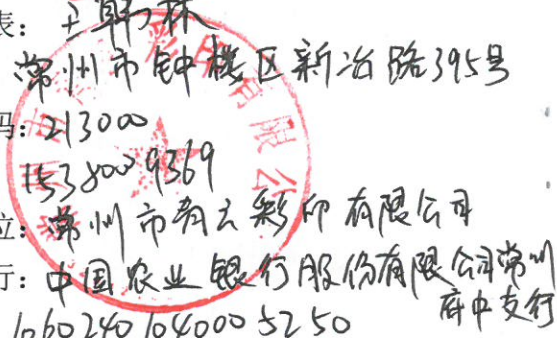 表:
常州市钟楼区新冶路395号
码: 213000
15380009369
位: 常州市青云彩印有限公司
行: 中国农业银行股份有限公司常州
府中支行
10602401040005250